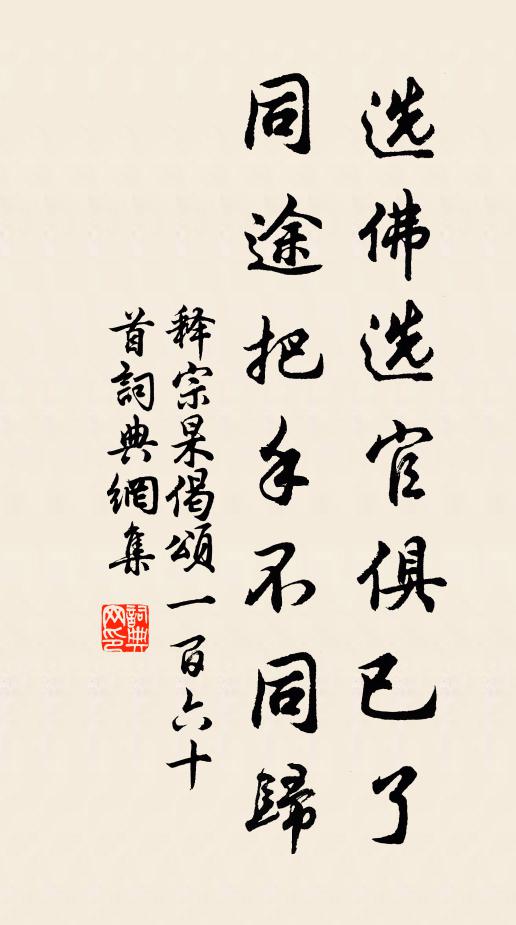 选佛选官俱已了
同途把手不同歸
释宗杲偈頌一百六十
首詞典網集
詞典
网印